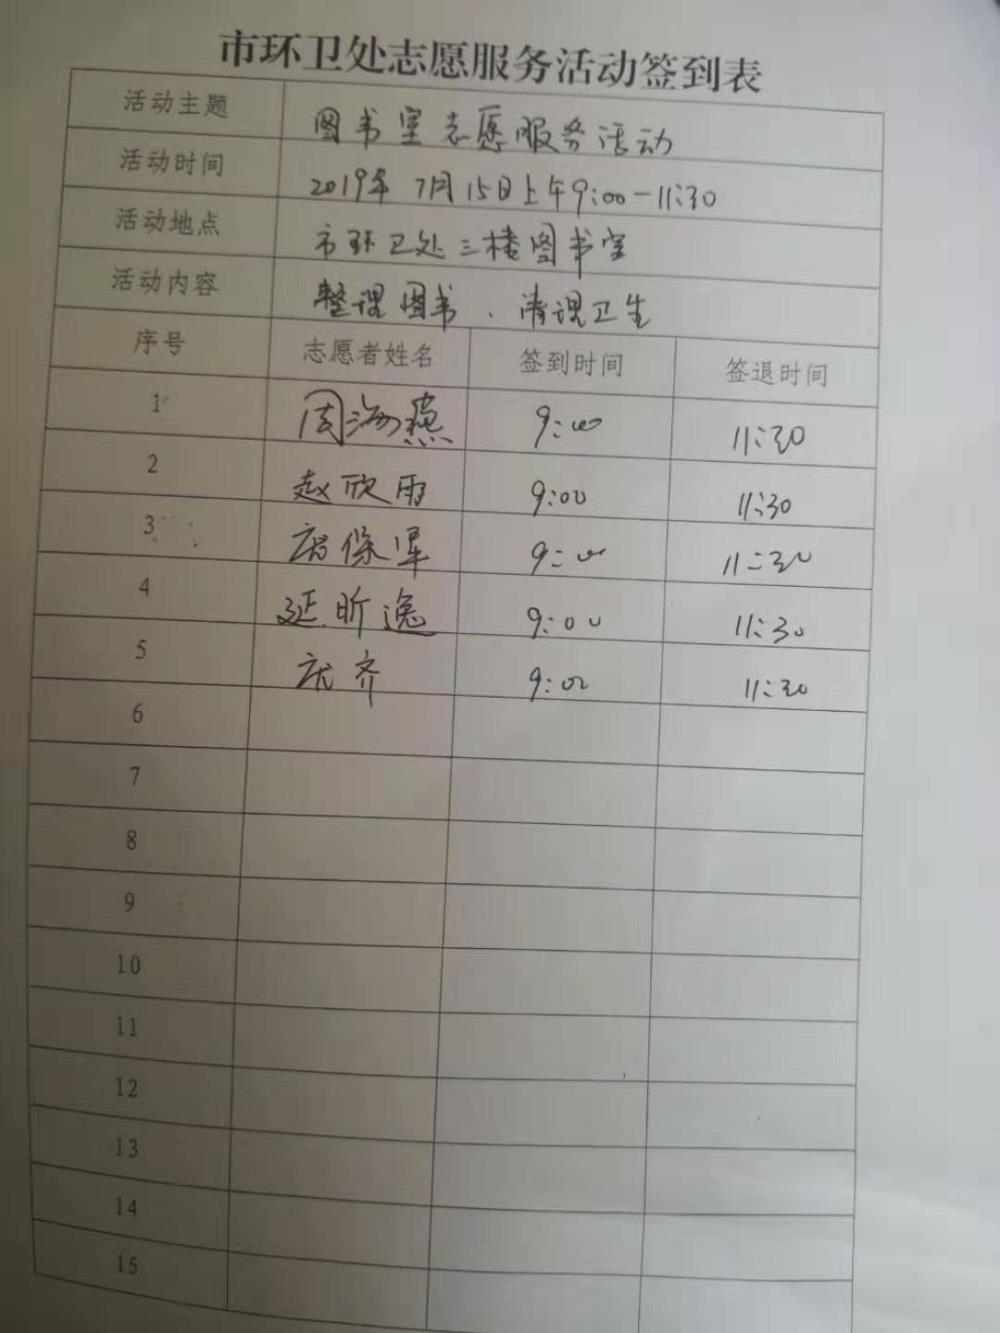 市环卫处志愿服务活动签到表
活动主题 图书室志愿服务活动
活动时间 2019年7月15日上午9:00-11:30
活动地点 市环卫处三楼图书室
活动内容 整理图书、清理卫生
序号 志愿者姓名 签到时间 签退时间
1 周海燕 9:00 11:30
2 赵欣雨 9:00 11:30
3 9:00 11:30
4 延昕逸 9:00 11:30
5 齐 9:00 11:30
6
7
8
9
10
11
12
13
14
15